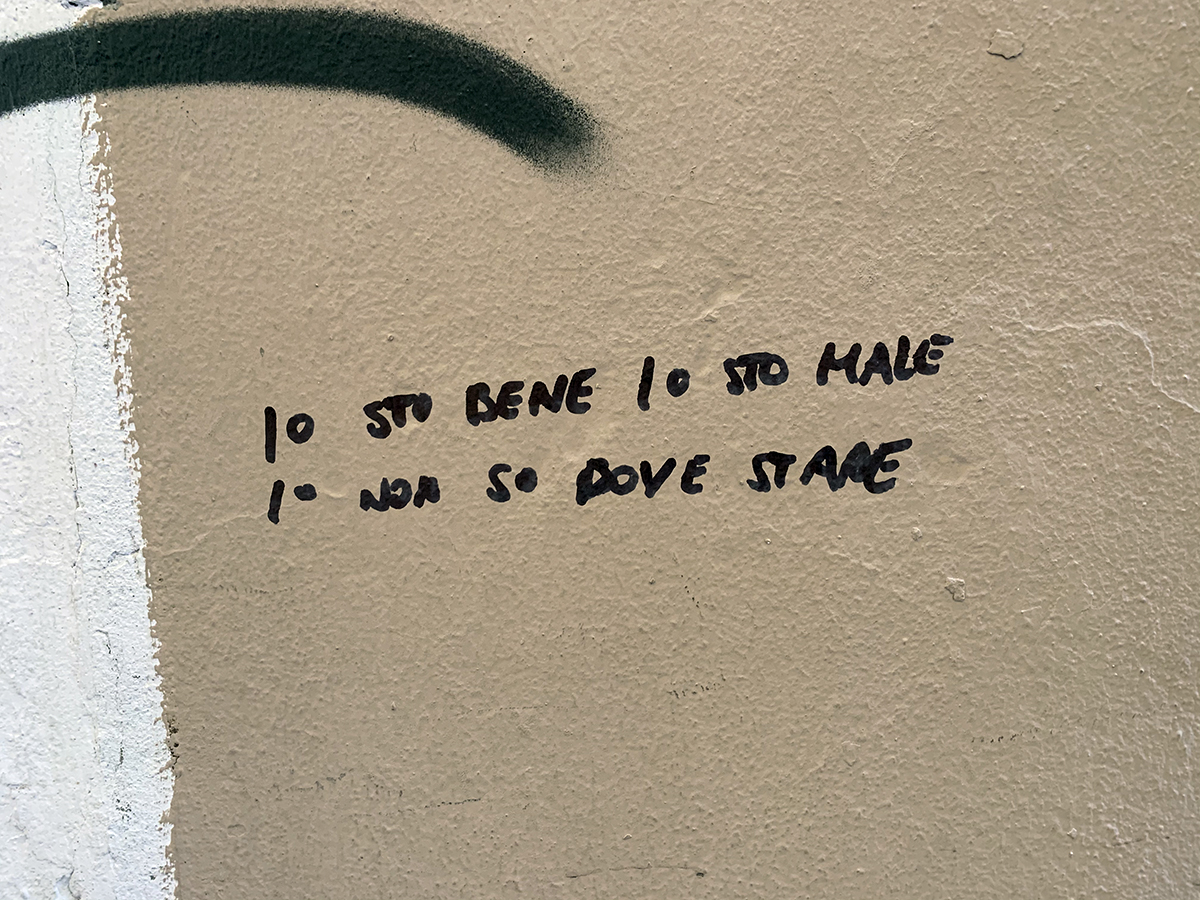 IO STO BENE IO STO MALE
IO NON SO DOVE STARE